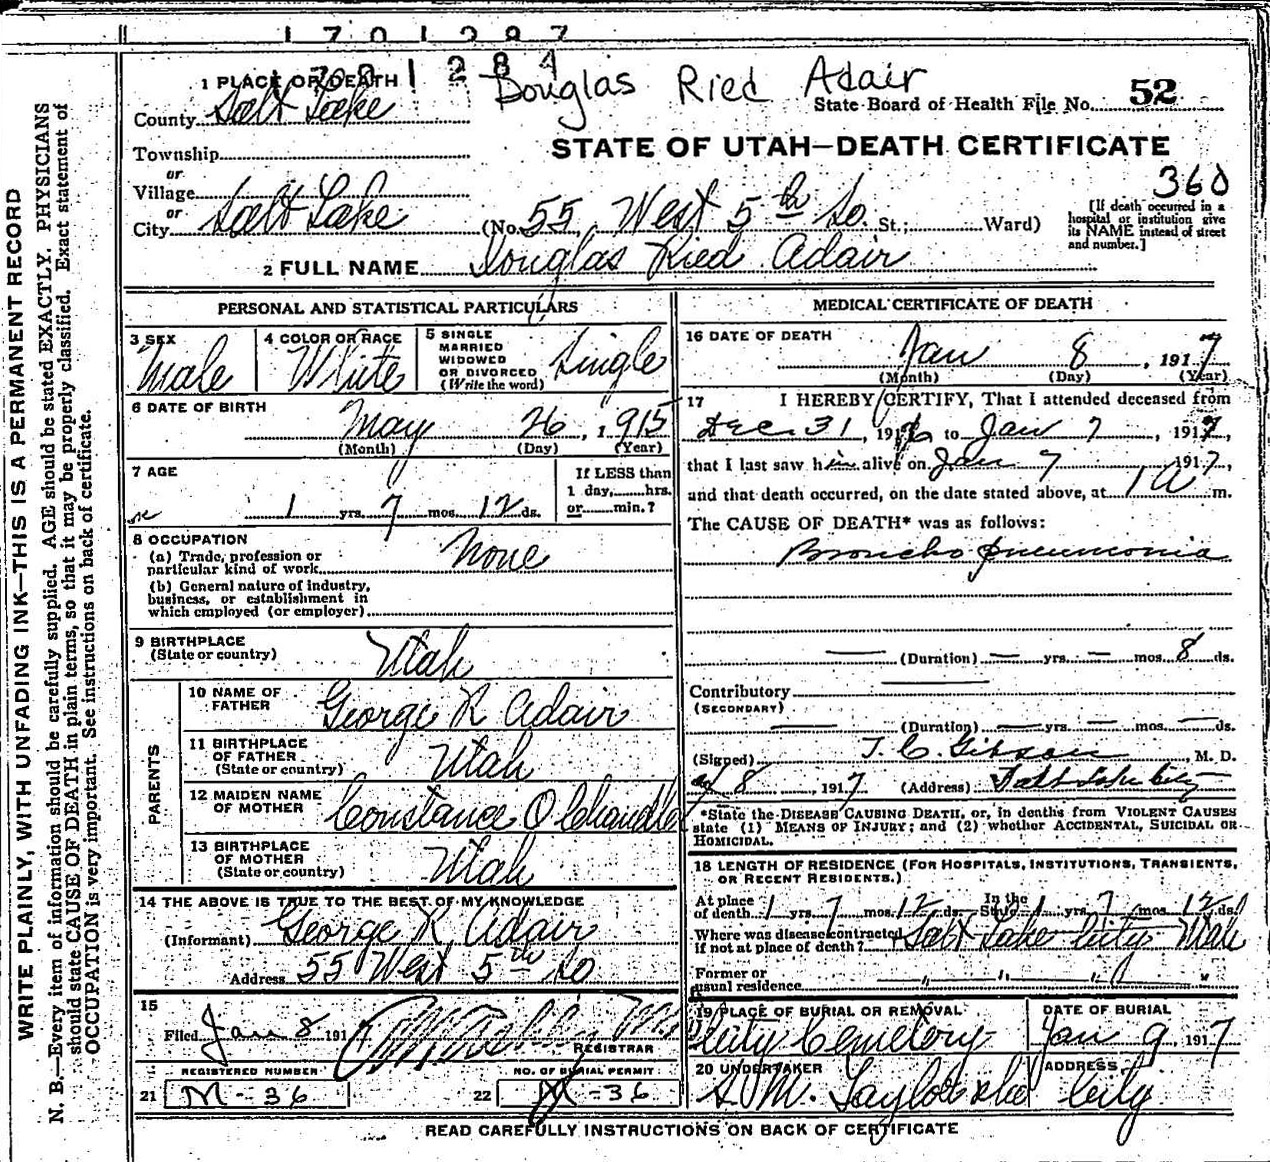 1701297
1701284
Douglas Ried Adair
1 PLACE OF DEATH
County Salt Lake
State Board of Health File No. 52
STATE OF UTAH—DEATH CERTIFICATE
Township
or
Village
or
City Salt Lake (No. 55 West 5th So. St.; Ward)
360
[If death occurred in a hospital or institution give its NAME instead of street and number.]
2 FULL NAME Douglas Ried Adair
PERSONAL AND STATISTICAL PARTICULARS
3 SEX
Male
4 COLOR OR RACE
White
5 SINGLE
MARRIED
WIDOWED
OR DIVORCED
(Write the word)
Single
6 DATE OF BIRTH
May 26, 1915
(Month) (Day) (Year)
7 AGE
1 yrs. 7 mos. 12 ds.
If LESS than
1 day, hrs.
or min.?
8 OCCUPATION
(a) Trade, profession or
particular kind of work None
(b) General nature of industry,
business, or establishment in
which employed (or employer)
9 BIRTHPLACE
(State or country) Utah
PARENTS
10 NAME OF
FATHER George R Adair
11 BIRTHPLACE
OF FATHER
(State or country) Utah
12 MAIDEN NAME
OF MOTHER Constance O Chandler
13 BIRTHPLACE
OF MOTHER
(State or country) Utah
14 THE ABOVE IS TRUE TO THE BEST OF MY KNOWLEDGE
(Informant) George R Adair
Address 55 West 5th So
15
Filed Jan 8 1917
REGISTRAR
REGISTERED NUMBER
21 M-36
NO. OF BURIAL PERMIT
22 M-36
MEDICAL CERTIFICATE OF DEATH
16 DATE OF DEATH
Jan 8, 1917
(Month) (Day) (Year)
17 I HEREBY CERTIFY, That I attended deceased from
Dec. 31, 1916 to Jan 7, 1917,
that I last saw him alive on Jan 7 1917,
and that death occurred, on the date stated above, at 1 A m.
The CAUSE OF DEATH* was as follows:
Broncho pneumonia
(Duration) — yrs. — mos. 8 ds.
Contributory
(SECONDARY)
(Duration) — yrs. — mos. — ds.
(Signed) T. C. Gibson, M. D.
8, 1917 (Address) Salt Lake City
*State the DISEASE CAUSING DEATH, or, in deaths from VIOLENT CAUSES
state (1) MEANS OF INJURY; and (2) whether ACCIDENTAL, SUICIDAL OR
HOMICIDAL.
18 LENGTH OF RESIDENCE (FOR HOSPITALS, INSTITUTIONS, TRANSIENTS,
OR RECENT RESIDENTS.)
At place
of death 1 yrs. 7 mos. 12 ds. In the State 1 yrs. 7 mos. 12 ds.
Where was disease contracted
if not at place of death? Salt Lake City Utah
Former or
usual residence " " " "
19 PLACE OF BURIAL OR REMOVAL
City Cemetery
DATE OF BURIAL
Jan 9, 1917
20 UNDERTAKER
S. M. Taylor & Co
ADDRESS
City
READ CAREFULLY INSTRUCTIONS ON BACK OF CERTIFICATE
WRITE PLAINLY, WITH UNFADING INK—THIS IS A PERMANENT RECORD
N. B.—Every item of information should be carefully supplied. AGE should be stated EXACTLY. PHYSICIANS
should state CAUSE OF DEATH in plain terms, so that it may be properly classified. Exact statement of
OCCUPATION is very important. See instructions on back of certificate.